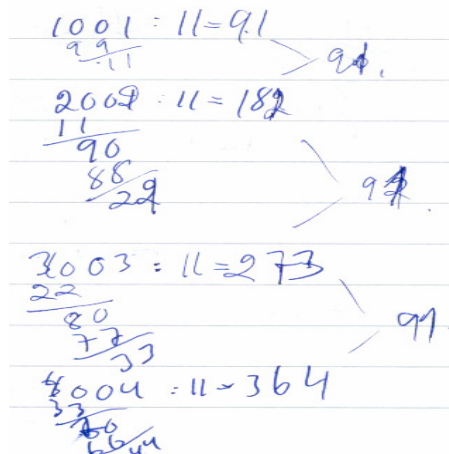 1001 : 11 = 91
99
11
91.
2002 : 11 = 182
11
90
88
22
91.
3003 : 11 = 273
22
80
77
33
91
4004 : 11 = 364
33
70
66
44